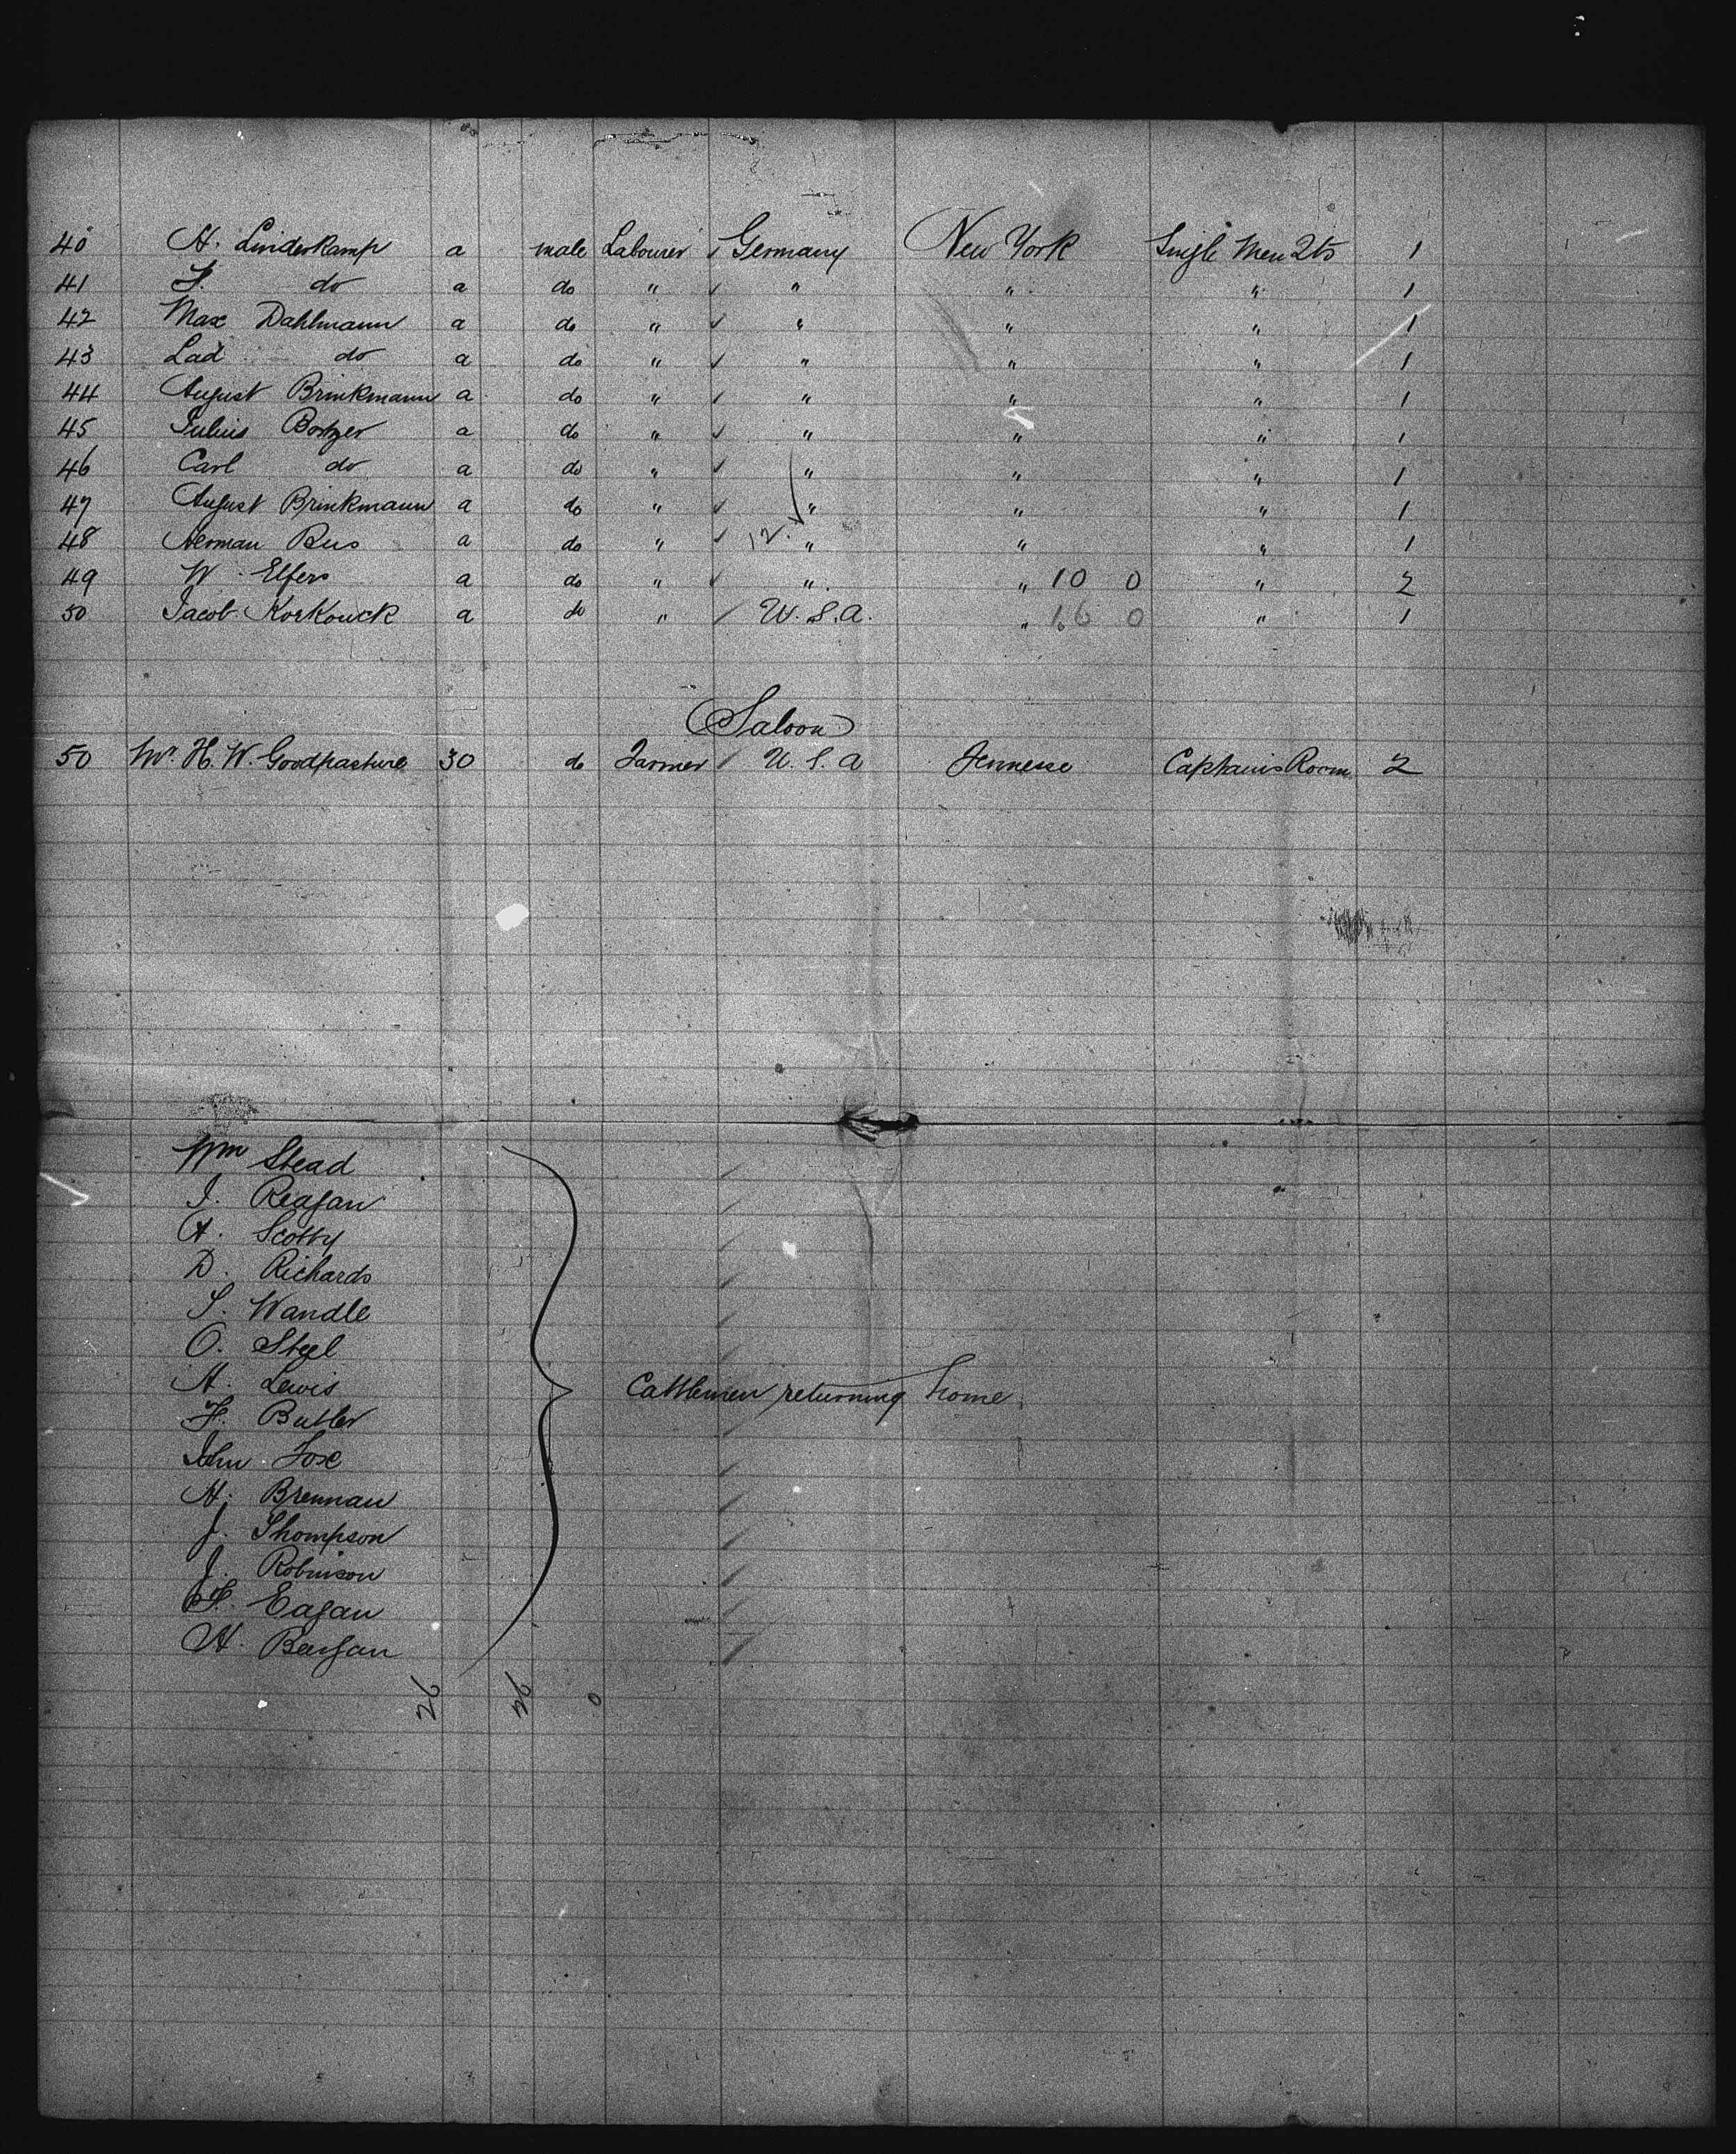 40 H. Linderkamp a male Labourer ✓ Germany New York Single Men Qts 1
41 F. do a do " ✓ " " " 1
42 Max Dahlmann a do " ✓ " " " 1
43 Lad do a do " ✓ " " " 1
44 August Brinkmann a do " ✓ " " " 1
45 Julius Botzer a do " ✓ " " " 1
46 Carl do a do " ✓ " " " 1
47 August Brinkmann a do " ✓ " " " 1
48 Herman Bus a do " ✓ 12 " " " 1
49 W. Elfers a do " ✓ " " 10 0 " 2
50 Jacob Korkouck a do " / U.S.A. " 16 0 " 1
Saloon
50 Mr. H. W. Goodpasture 30 do Farmer / U.S.A Tennesse Captains Room 2
Wm Stead
J. Reagan
A. Scotty
D. Richards
S. Wandle
O. Steel
H. Lewis
Cattlemen returning home
F. Butler
John Fox
H. Brennan
J. Thompson
J. Robinson
F. Eagan
H. Bargan
26 26 0